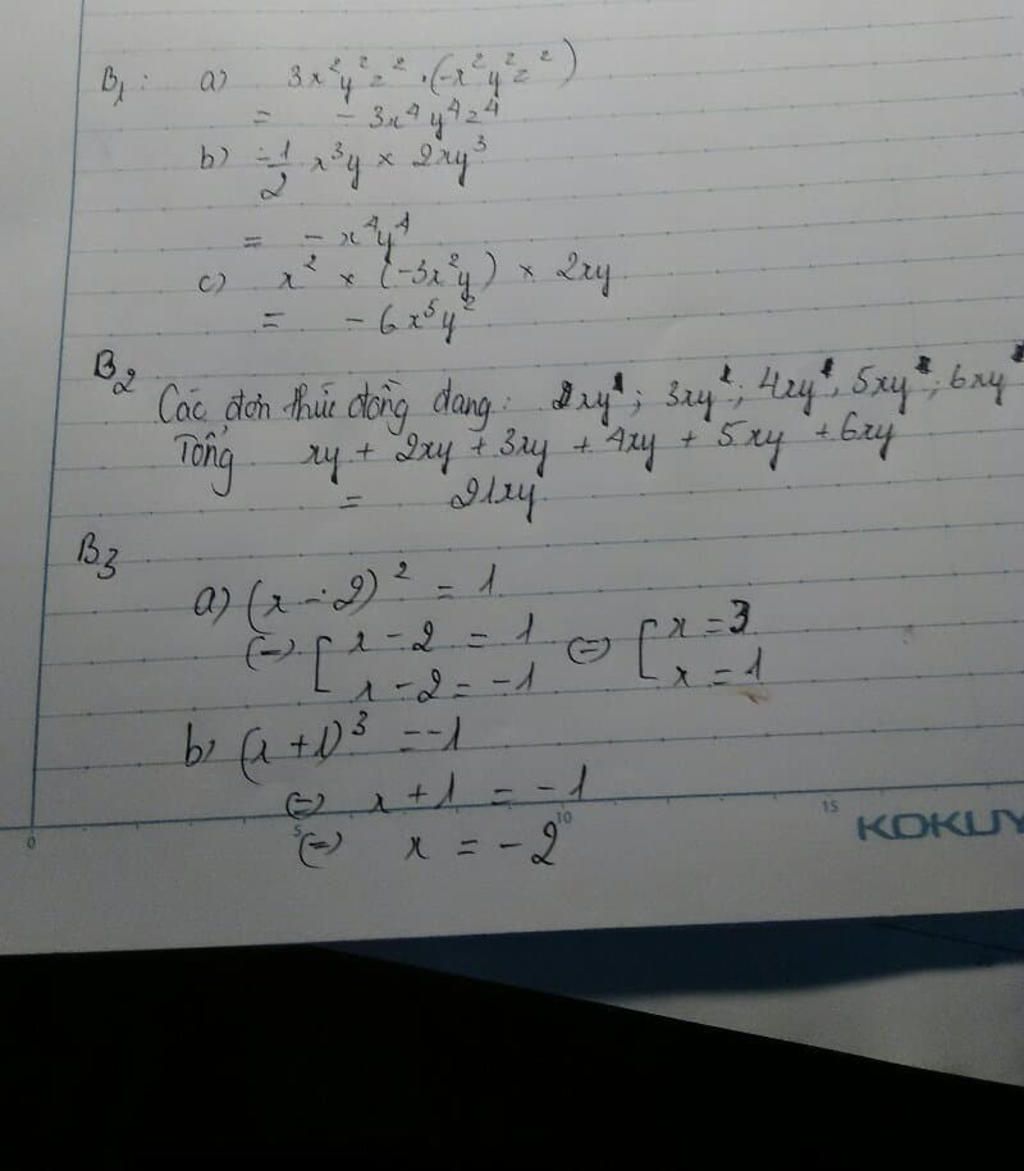 B1: a) 3x²y²z² . (-x²y²z²)
= - 3x⁴y⁴z⁴
b) -1/2 x³y × 2xy³
= - x⁴y⁴
c) x² × (-3x²y) × 2xy
= - 6x⁵y²
B2
Các đơn thức đồng dạng: 2xy; 3xy; 4xy; 5xy; 6xy
Tổng xy + 2xy + 3xy + 4xy + 5xy + 6xy
= 21xy
B3
a) (x - 2)² = 1
(=) [ x - 2 = 1 (=) [ x = 3
x - 2 = -1 x = 1
b) (x + 1)³ = -1
(=) x + 1 = -1
(=) x = -2
0 5 10 15 KOKUY